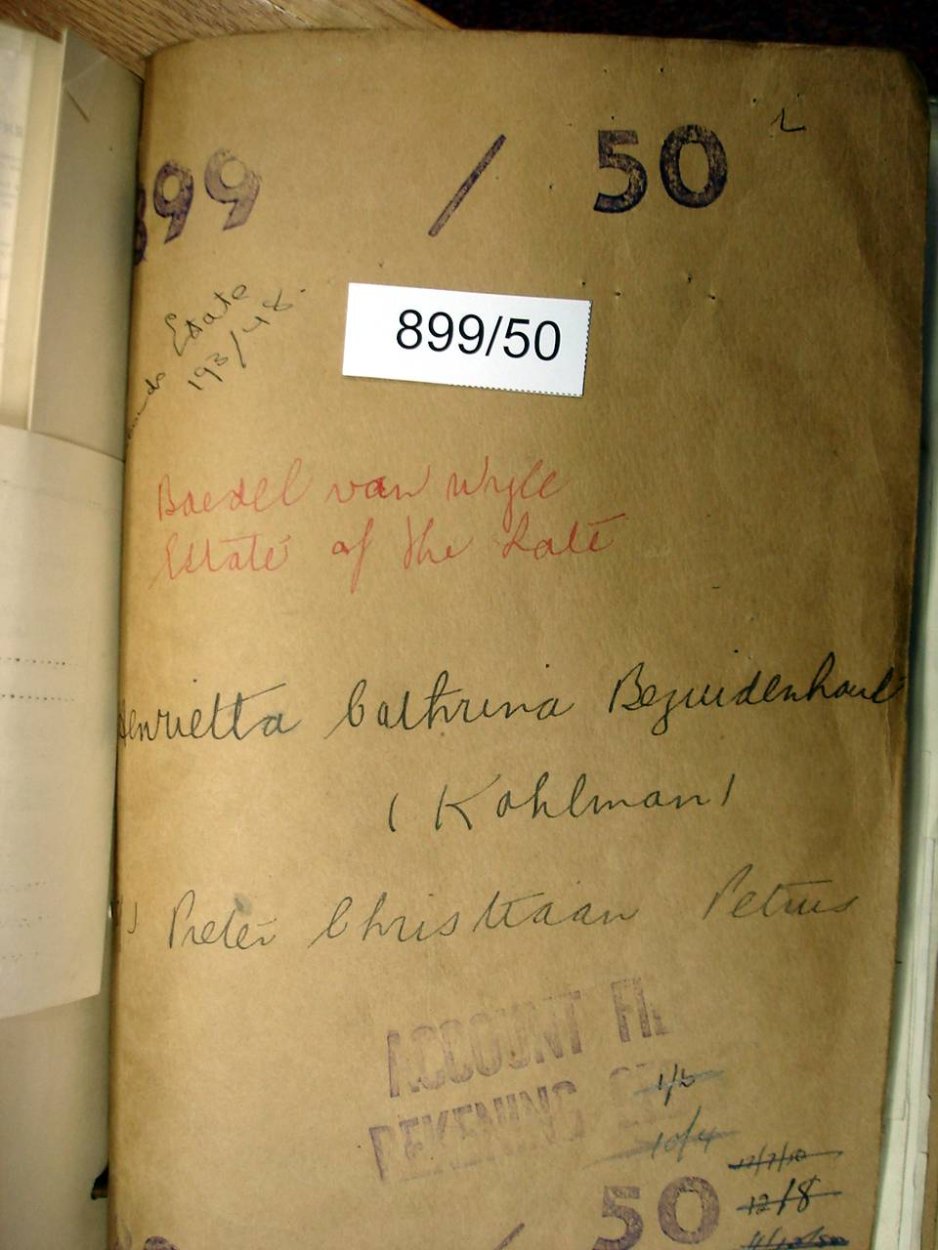 899 / 50
Estate
193/48.
899/50
Boedel van Wyle
Estate of the Late
Henrietta Cathrina Bezuidenhout
(Kohlman)
Pieter Christiaan Petrus
ACCOUNT FI
REKENING
10/4
12/8
50